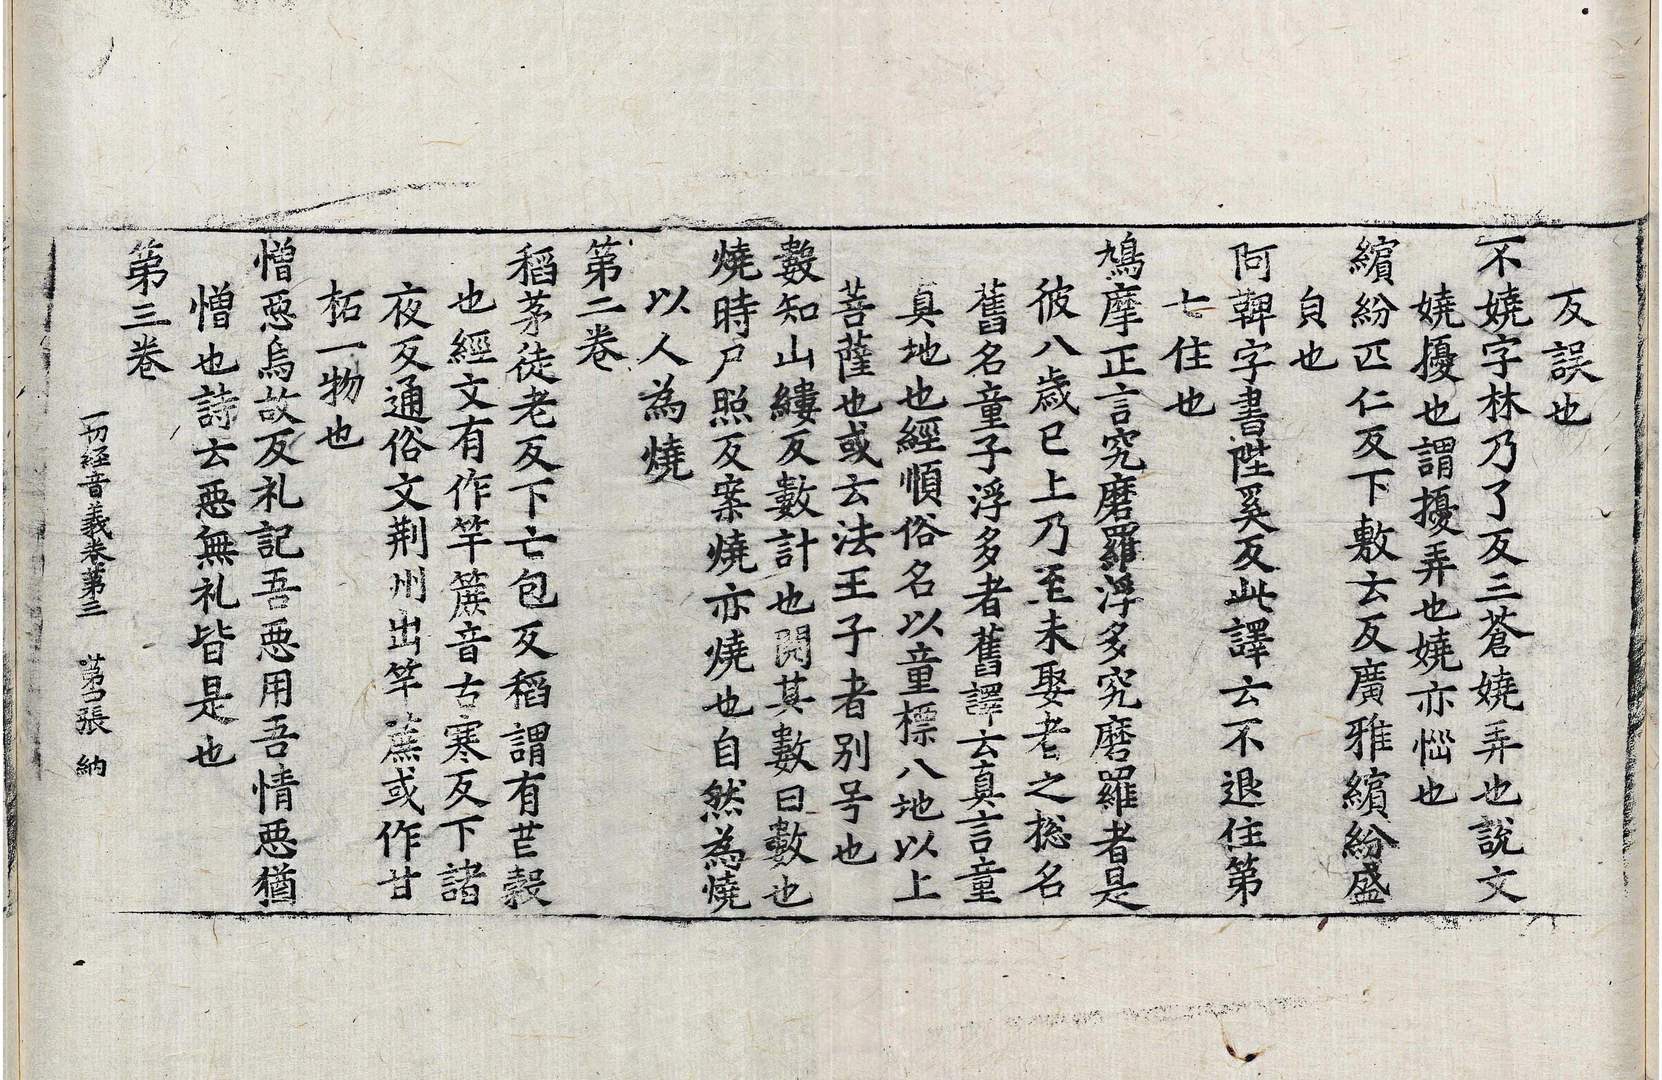 反誤也
不嬈字林乃了反三蒼嬈弄也說文
嬈擾也謂擾弄也嬈亦惱也
繽紛匹仁反下敷云反廣雅繽紛盛
皃也
阿鞞字書陛奚反此譯云不退住第
七住也
鳩摩正言究磨羅浮多究磨羅者是
彼八歲已上乃至未娶者之捴名
舊名童子浮多者舊譯云真言童
真地也經順俗名以童標八地以上
菩薩也或云法王子者別号也
數知山縷反數計也閱其數曰數也
燒時尸照反案燒亦燒也自然為燒
以人為燒
第二卷
稻茅徒老反下亡包反稻謂有芒穀
也經文有作竿蔗音古寒反下諸
夜反通俗文荆州出竿蔗或作甘
柘一物也
憎惡烏故反礼記吾惡用吾情惡猶
憎也詩云惡無礼皆是也
第三卷
一切經音義卷第三 第 張 納